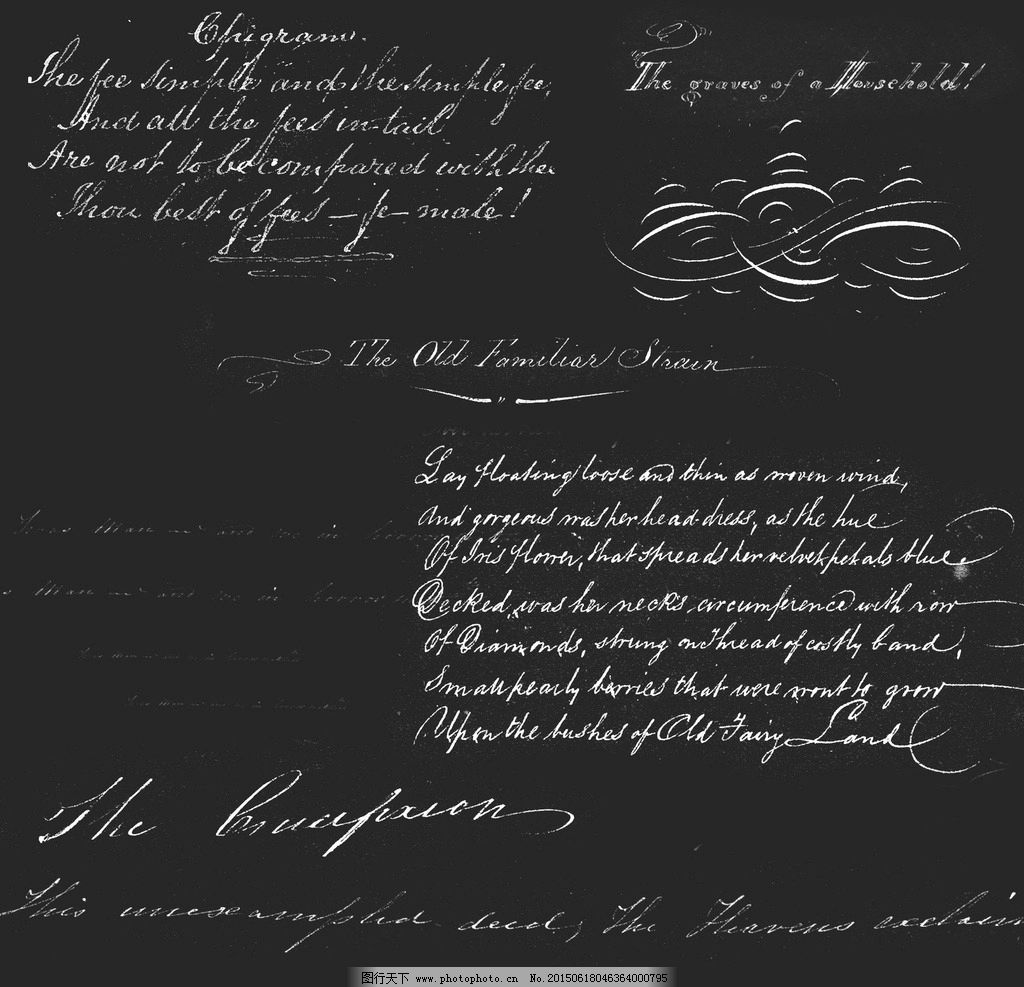 Epigram.
The fee simple and the simple fee,
And all the fees in-tail
Are not to be compared with thee
Thou best of fees — fe — male!
The graves of a Household!
The Old Familiar Strain
Lay floating loose and thin as woven wind,
And gorgeous was her head-dress, as the hue
Of Iris flower, that spreads her velvet petals blue
Decked, was her neck's circumference with row
Of Diamonds, strung on Thread of costly band,
Small pearly berries that were wont to grow
Upon the bushes of Old Fairy Land
man and in
man and in
The Crucifixion
This unexampled deed, the Heavens exclaim
图行天下 www.photophoto.cn No.20150618046364000795